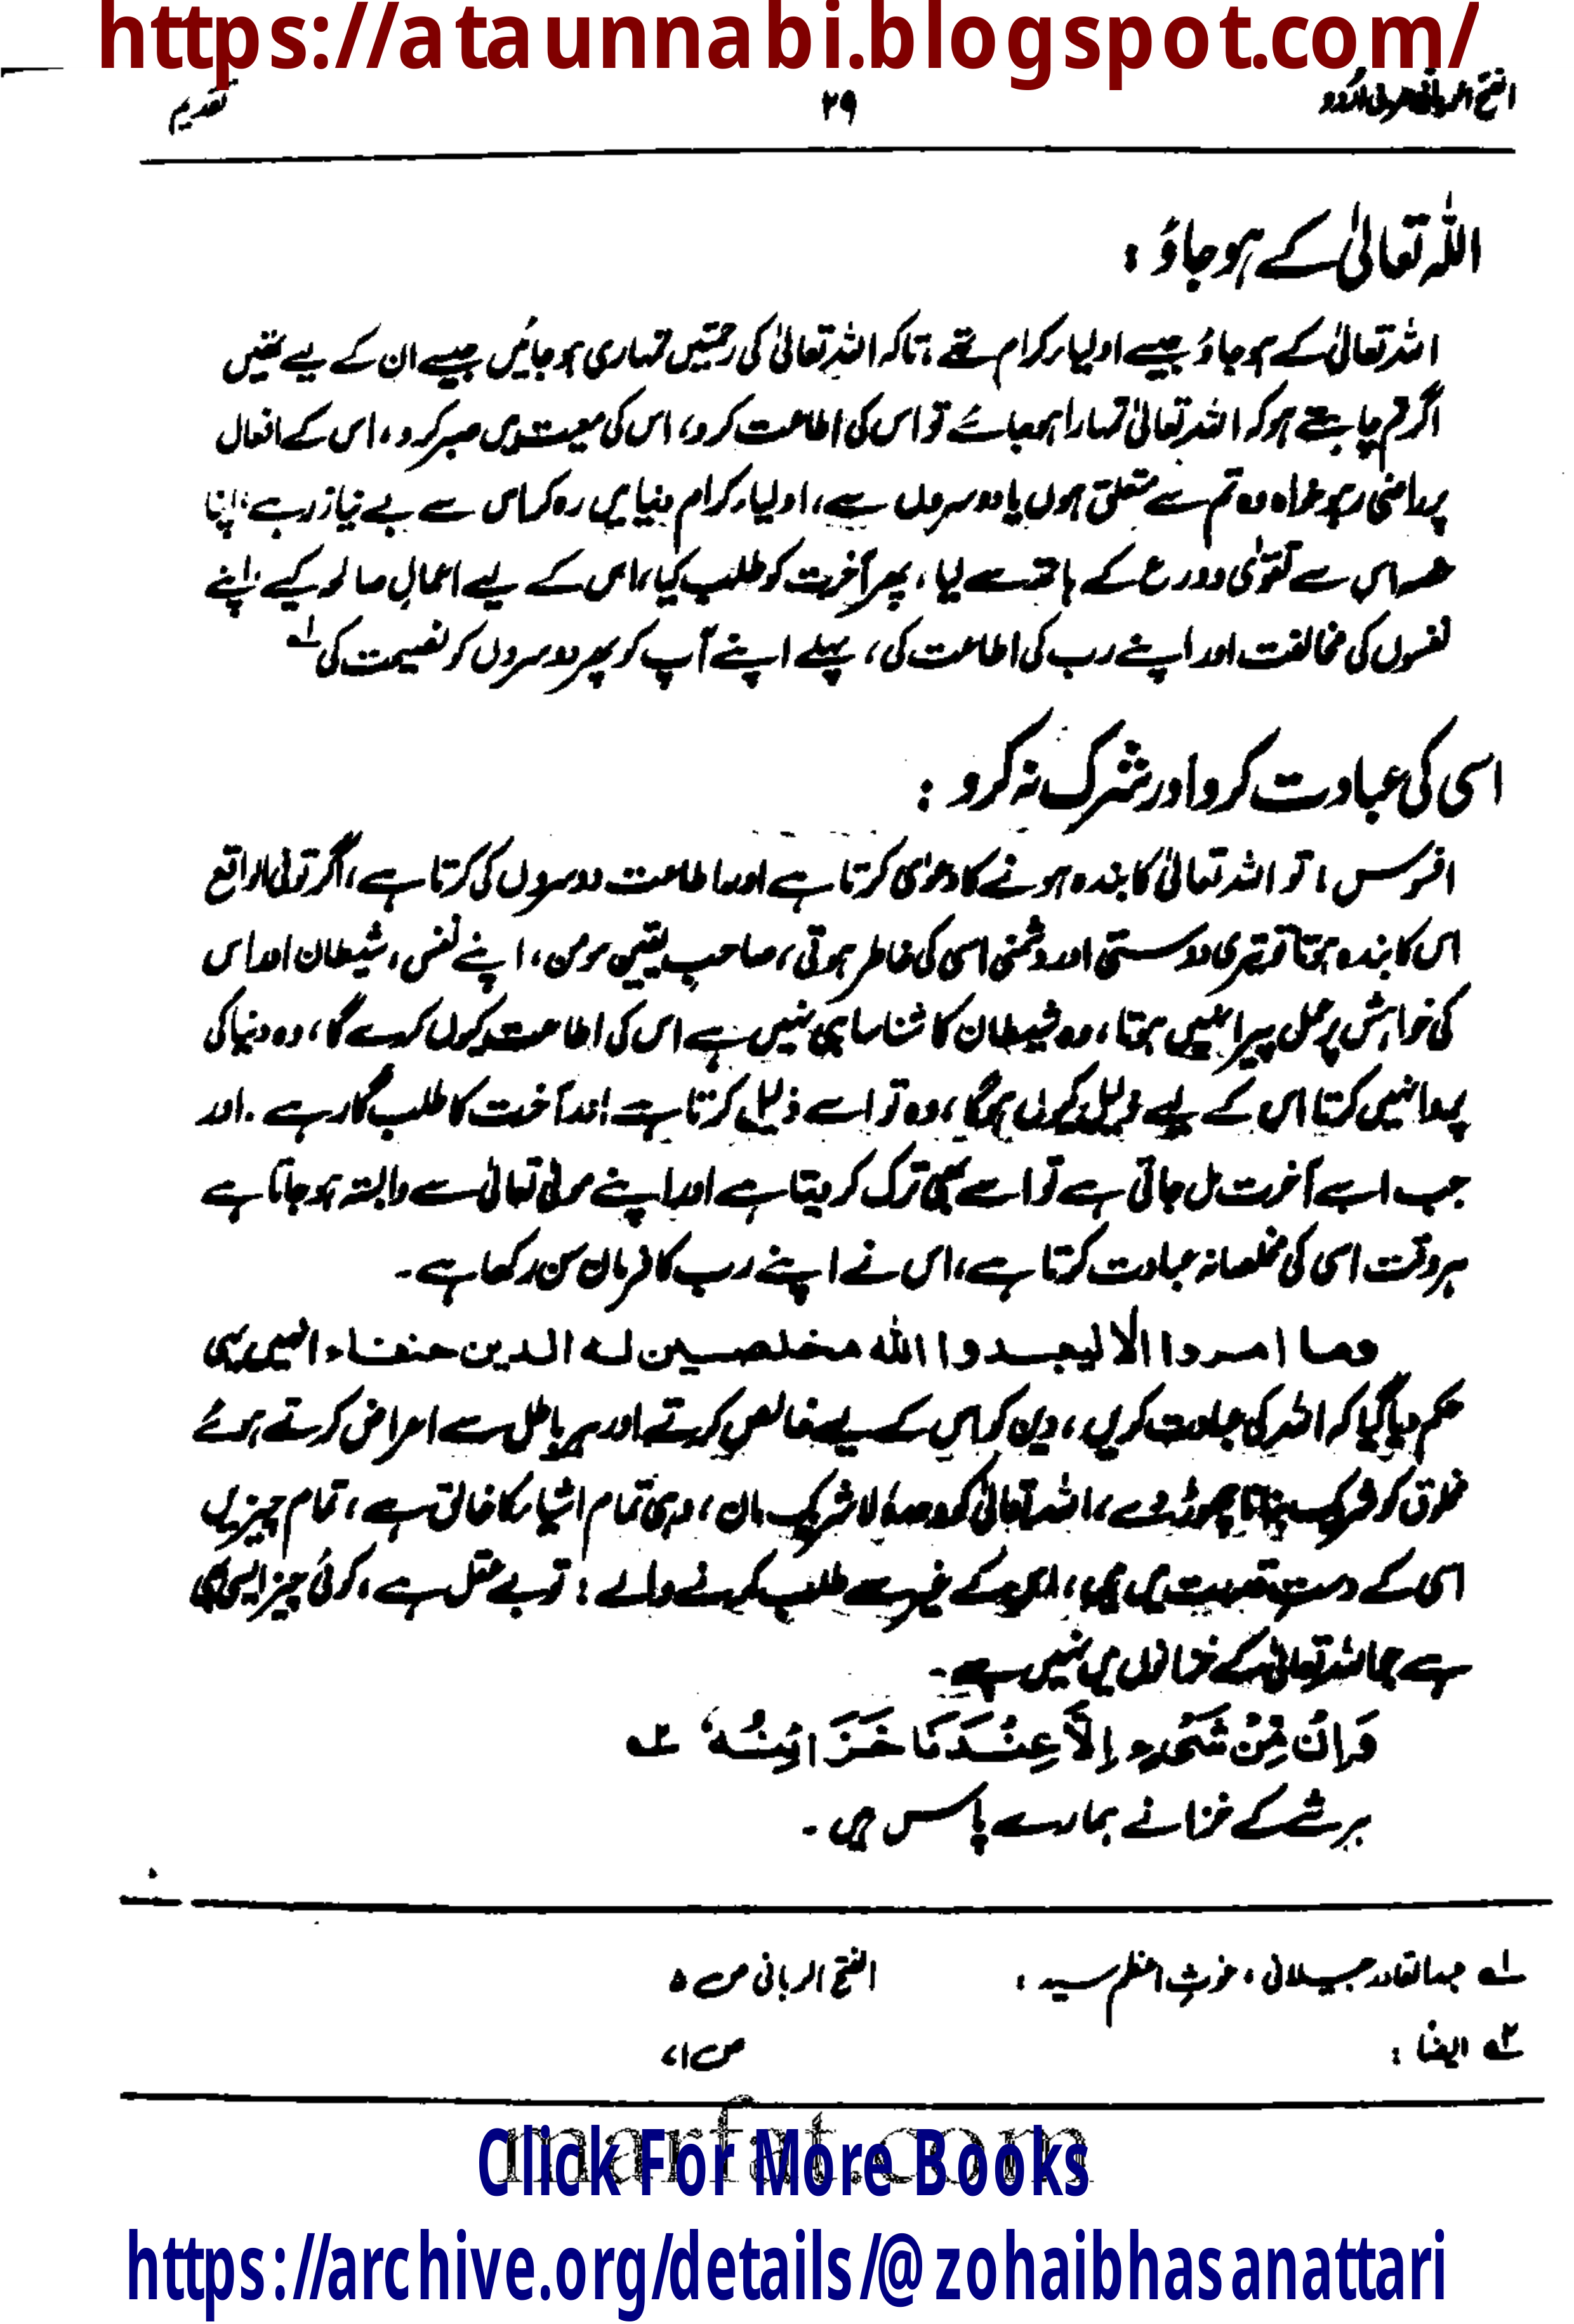 https://ataunnabi.blogspot.com/
الفتح الربانی عربی اردو ۲۹ تقدیم
اللہ تعالیٰ کے ہو جاؤ :
اللہ تعالیٰ کے ہو جاؤ جیسے اولیاء کرام تھے ، تاکہ اللہ تعالیٰ کی رحمتیں تمہاری ہو جائیں جیسے ان کے لیے تھیں
اگر تم چاہتے ہو کہ اللہ تعالیٰ تمہارا ہو جائے تو اس کی اطاعت کرو ، اس کی معیت میں صبر کرو ، اس کے افعال
پر راضی رہو خواہ وہ تم سے متعلق ہوں یا دوسروں سے ، اولیاء کرام دنیا میں رہ کر اس سے بے نیاز رہے ، اپنا
حصہ اس سے تقویٰ و ورع کے ہاتھ سے لیا ، پھر آخرت کو طلب کیا ، اس کے لیے اعمالِ صالحہ کیے ، اپنے
نفسوں کی مخالفت اور اپنے رب کی اطاعت کی ، پہلے اپنے آپ کو پھر دوسروں کو نصیحت کی ۱ے
اسی کی عبادت کرو اور شرک نہ کرو :
افسوس ! تو اللہ تعالیٰ کا بندہ ہونے کا دعویٰ کرتا ہے اور اطاعت دوسروں کی کرتا ہے ، اگر تو فی الواقع
اس کا بندہ ہوتا تو تیری دوستی اور دشمنی اسی کی خاطر ہوتی ، صاحب یقین مومن ، اپنے نفس ، شیطان اور اس
کی خواہش پر عمل پیرا نہیں ہوتا ، وہ شیطان کا شناسا ہی نہیں ہے اس کی اطاعت کیوں کرے گا ، وہ دنیا کی
پروا نہیں کرتا اس کے لیے ذلیل کیوں ہوگا ، وہ تو اسے ذلیل کرتا ہے اور آخرت کا طلب گار ہے ۔ اور
جب اسے آخرت مل جاتی ہے تو اسے بھی ترک کر دیتا ہے اور اپنے مولیٰ تعالیٰ سے وابستہ ہو جاتا ہے
ہر وقت اسی کی مخلصانہ عبادت کرتا ہے ، اس نے اپنے رب کا فرمان سن رکھا ہے ۔
وما امروا الا لیعبدوا اللہ مخلصین لہ الدین حنفاء انہیں یہی
حکم دیا گیا کہ اللہ کی عبادت کریں ، دین کو اس کے لیے خالص کرتے اور ہر باطل سے اعراض کرتے ہوئے
مخلوق کو شریک بنانا چھوڑ دے ، اللہ تعالیٰ کو وحدہٗ لا شریک مان ، وہی تمام اشیاء کا خالق ہے ، تمام چیزیں
اسی کے دستِ قدرت میں ہیں ، اس کے غیر سے طلب کرنے والے ! تو بے عقل ہے ، کوئی چیز ایسی بھی
ہے جو اللہ تعالیٰ کے خزانوں میں نہیں ہے ۔
وَاِنْ مِّنْ شَیْءٍ اِلَّا عِنْدَنَا خَزَائِنُہٗ ۲ے
ہر شے کے خزانے ہمارے پاس ہیں ۔
۱ے عبدالقادر جیلانی ، غوثِ اعظم سید : الفتح الربانی ص ۵
۲ے ایضاً : ص ۷۱
marfat.com
Click For More Books
https://archive.org/details/@zohaibhasanattari